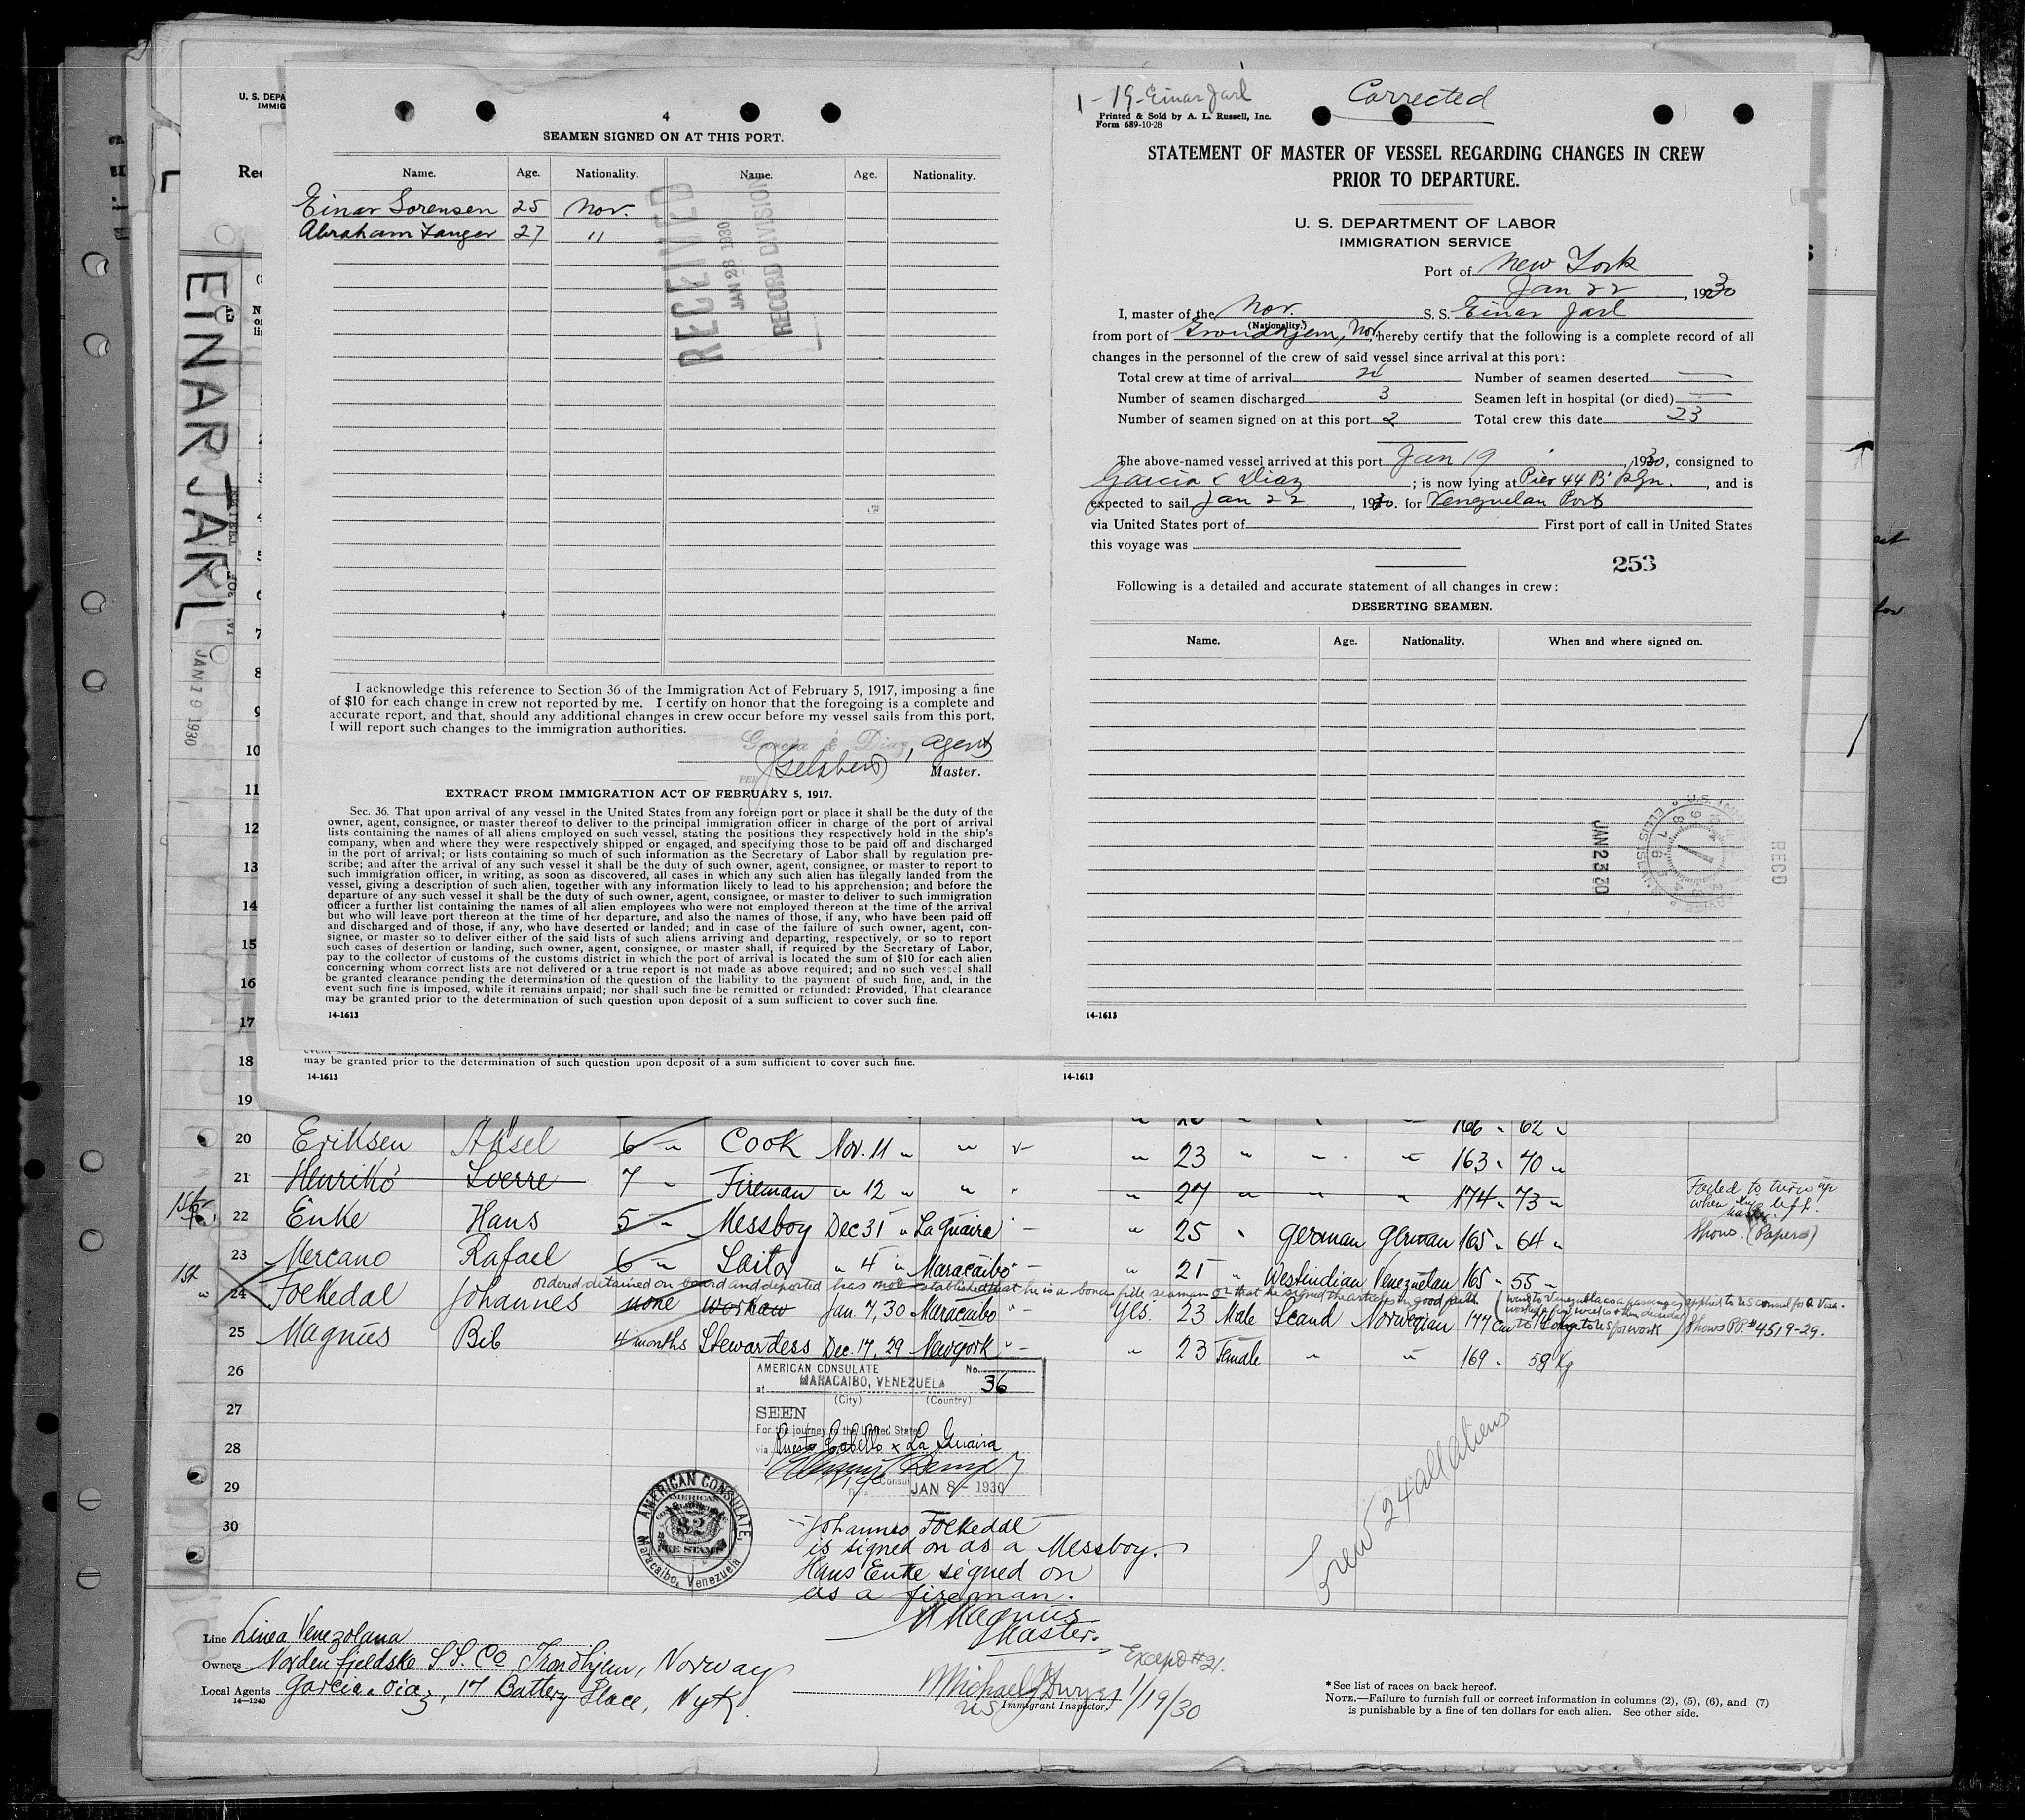 U. S. DEPA
IMMIG
Rec
EINAR JARL
JAN 19 1930
4
SEAMEN SIGNED ON AT THIS PORT.
Name. Age. Nationality. Name. Age. Nationality.
Einar Sorensen 25 Nor.
Abraham Langer 27 "
RECEIVED
JAN 23 1930
RECORD DIVISION
I acknowledge this reference to Section 36 of the Immigration Act of February 5, 1917, imposing a fine
of $10 for each change in crew not reported by me. I certify on honor that the foregoing is a complete and
accurate report, and that, should any additional changes in crew occur before my vessel sails from this port,
I will report such changes to the immigration authorities.
Garcia & Diaz, agents
PER
Master.
EXTRACT FROM IMMIGRATION ACT OF FEBRUARY 5, 1917.
Sec. 36. That upon arrival of any vessel in the United States from any foreign port or place it shall be the duty of the
owner, agent, consignee, or master thereof to deliver to the principal immigration officer in charge of the port of arrival
lists containing the names of all aliens employed on such vessel, stating the positions they respectively hold in the ship's
company, when and where they were respectively shipped or engaged, and specifying those to be paid off and discharged
in the port of arrival; or lists containing so much of such information as the Secretary of Labor shall by regulation pre-
scribe; and after the arrival of any such vessel it shall be the duty of such owner, agent, consignee, or master to report to
such immigration officer, in writing, as soon as discovered, all cases in which any such alien has illegally landed from the
vessel, giving a description of such alien, together with any information likely to lead to his apprehension; and before the
departure of any such vessel it shall be the duty of such owner, agent, consignee, or master to deliver to such immigration
officer a further list containing the names of all alien employees who were not employed thereon at the time of the arrival
but who will leave port thereon at the time of her departure, and also the names of those, if any, who have been paid off
and discharged and of those, if any, who have deserted or landed; and in case of the failure of such owner, agent, con-
signee, or master so to deliver either of the said lists of such aliens arriving and departing, respectively, or so to report
such cases of desertion or landing, such owner, agent, consignee, or master shall, if required by the Secretary of Labor,
pay to the collector of customs of the customs district in which the port of arrival is located the sum of $10 for each alien
concerning whom correct lists are not delivered or a true report is not made as above required; and no such vessel shall
be granted clearance pending the determination of the question of the liability to the payment of such fine, and, in the
event such fine is imposed, while it remains unpaid; nor shall such fine be remitted or refunded: Provided, That clearance
may be granted prior to the determination of such question upon deposit of a sum sufficient to cover such fine.
14-1613
1-19-Einar Jarl
Corrected
Printed & Sold by A. L. Russell, Inc.
Form 689-10-28
STATEMENT OF MASTER OF VESSEL REGARDING CHANGES IN CREW
PRIOR TO DEPARTURE.
U. S. DEPARTMENT OF LABOR
IMMIGRATION SERVICE
Port of New York
Jan 22, 1930
I, master of the Nor. S. S. Einar Jarl
(Nationality.)
from port of Trondhjem, Nor, hereby certify that the following is a complete record of all
changes in the personnel of the crew of said vessel since arrival at this port:
Total crew at time of arrival 24 Number of seamen deserted —
Number of seamen discharged 3 Seamen left in hospital (or died) —
Number of seamen signed on at this port 2 Total crew this date 23
The above-named vessel arrived at this port Jan 19, 1930, consigned to
Garcia & Diaz; is now lying at Pier 44 B' Klyn., and is
expected to sail Jan 22, 1930. for Venezuelan Ports
via United States port of First port of call in United States
this voyage was
253
Following is a detailed and accurate statement of all changes in crew:
DESERTING SEAMEN.
Name. Age. Nationality. When and where signed on.
JAN 23 30
RECD
14-1613
may be granted prior to the determination of such question upon deposit of a sum sufficient to cover such fine.
14-1613 14-1613
8
9
10
11
12
13
14
15
16
17
18
19
166 " 62 "
20 Eriksen Aksel 6 " Cook Nov. 11 " " " 23 " " " 163 " 70 "
21 Henriko Sverre 7 " Fireman " 12 " " " 27 " " " 174 " 73 " Failed to turn up when the master left.
22 Enke Hans 5 " Messboy Dec 31 " La Guaira " 25 " German German 165 " 64 " Shows (Papers)
23 Mercano Rafael 6 " Sailor " 4 " Maracaibo " 21 " Westindian Venezuelan 165 " 55 "
1st
Ordered detained on board and deported has not established that he is a bona fide seaman or that he signed the articles in good faith
24 Foekedal Johannes none workaw Jan. 7, 30 Maracaibo " Yes. 23 Male Scand Norwegian 177 Cm
applied to US consul for a Visa.
Shows PP. #4519-29.
25 Magnus Bib 4 months Stewardess Dec. 17, 29 Newyork " " 23 Female " " 169 " 58 Kg
26
27
28
29
30
AMERICAN CONSULATE No. 36
at MARACAIBO, VENEZUELA
(City) (Country)
SEEN
For the journey to the United States
via Puerto Cabello & La Guaira
Consul
JAN 8 - 1930
AMERICAN CONSULATE,
Maracaibo, Venezuela
FEE STAMP
Johannes Foekedal
is signed on as a Messboy.
Hans Enke signed on
as a fireman.
Magnus
Master.
Crew 24 all aliens
Line Linea Venezolana
Owners Nordenfjeldske S.S. Co Trondhjem, Norway
Local Agents Garcia & Diaz, 17 Battery Place, NyK.
14-1240
Except #21.
Michael J Dwyer 1/19/30
US Immigrant Inspector.
*See list of races on back hereof.
NOTE.—Failure to furnish full or correct information in columns (2), (5), (6), and (7)
is punishable by a fine of ten dollars for each alien. See other side.